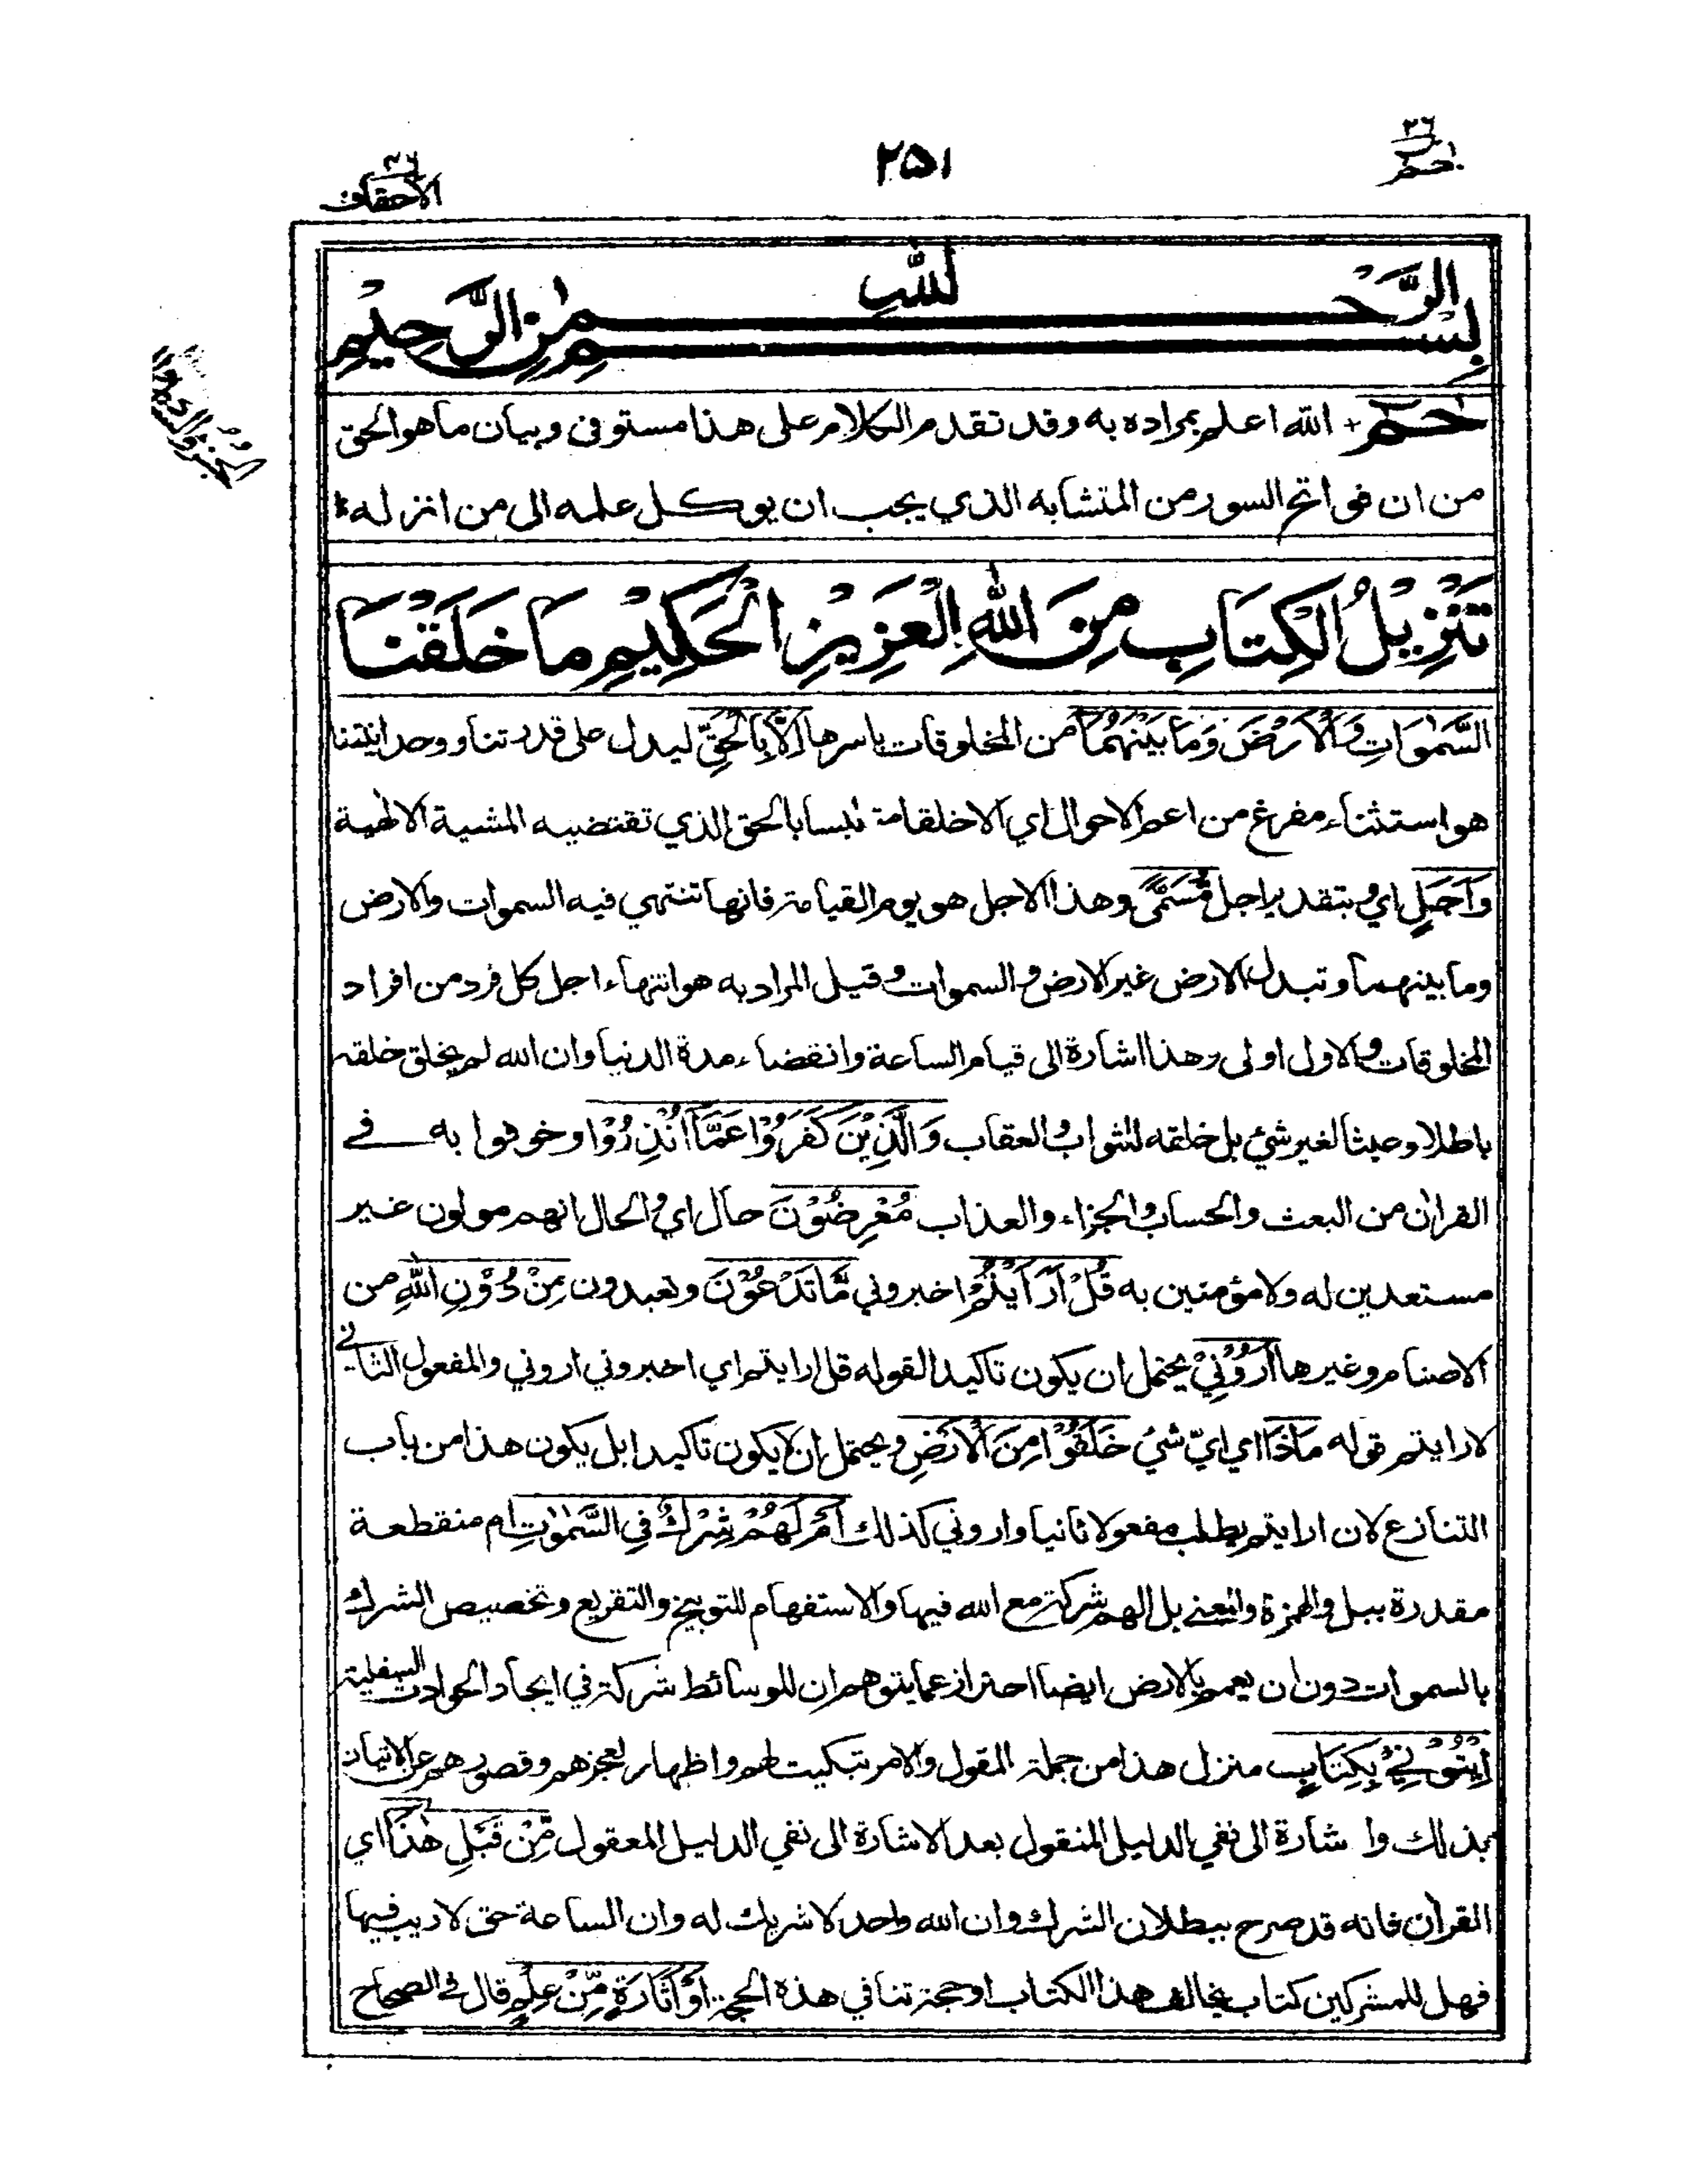 حم ٢٦
٢٥١
الاحقاف ٤٦
بسم الله الرحمن الرحيم
الجزء السادس والعشرون
حٰمٓ + الله اعلم بمراده به وقد تقدم الكلام على هذا مستوفى وبيان ما هو الحق
من ان فواتح السور من المتشابه الذي يجب ان يوكل علمه الى من انزله *
تَنْزِيْلُ الْكِتَابِ مِنَ اللهِ الْعَزِيْزِ الْحَكِيْمِ مَا خَلَقْنَا
السَّمٰوَاتِ وَالْاَرْضَ وَمَا بَيْنَهُمَا من المخلوقات باسرها اِلَّا بِالْحَقِّ ليدل على قدرتنا ووحدانيتنا
هو استثناء مفرغ من اعم الاحوال اي الا خلقا متلبسا بالحق الذي تقتضيه المشية الالهية
وَاَجَلٍ اي وبتقدير اجل مُّسَمًّى وهذا الاجل هو يوم القيامة فانها تنتهي فيه السموات والارض
وما بينهما وتبدل الارض غير الارض والسموات وقيل المراد به هو انتهاء اجل كل فرد من افراد
المخلوقات والاول اولى وهذا اشارة الى قيام الساعة وانقضاء مدة الدنيا وان الله لم يخلق خلقه
باطلا وعبثا لغير شئ بل خلقه للثواب والعقاب وَالَّذِيْنَ كَفَرُوْا عَمَّا اُنْذِرُوْا وخوفوا به في
القران من البعث والحساب والجزاء والعذاب مُعْرِضُوْنَ حال اي والحال انهم مولون غير
مستعدين له ولا مؤمنين به قُلْ اَرَاَيْتُمْ اخبروني مَّا تَدْعُوْنَ وتعبدون مِنْ دُوْنِ اللهِ من
الاصنام وغيرها اَرُوْنِيْ يحتمل ان يكون تاكيدا لقوله قل ارايتم اي اخبروني اروني والمفعول الثاني
لارايتم قوله مَاذَا اي ايّ شئ خَلَقُوْا مِنَ الْاَرْضِ ويحتمل ان لا يكون تاكيدا بل يكون هذا من باب
التنازع لان ارايتم يطلب مفعولا ثانيا واروني كذلك اَمْ لَهُمْ شِرْكٌ فِي السَّمٰوٰتِ ام منقطعة
مقدرة ببل والهمزة والمعنے بل الهم شركة مع الله فيها والاستفهام للتوبيخ والتقريع وتخصيص الشرك
بالسموات دون ان يعمم بالارض ايضا احتراز عما يتوهم ان للوسائط شركة في ايجاد الحوادث السفلية
اِيْتُوْنِيْ بِكِتَابٍ منزل هذا من جملة المقول والامر تبكيت لهم واظهار لعجزهم وقصورهم عن الاتيان
بذلك وا شارة الى نفي الدليل المنقول بعد الاشارة الى نفي الدليل المعقول مِّنْ قَبْلِ هٰذَا اي
القران فانه قد صرح ببطلان الشرك وان الله واحد لا شريك له وان الساعة حق لا ريب فيها
فهل للمشركين كتاب يخالف هذا الكتاب او حجة تنافي هذه الحجة اَوْ اَثَارَةٍ مِّنْ عِلْمٍ قال في الصحاح